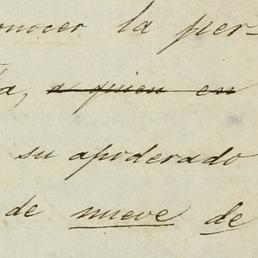 onocer la per-
a, a quien en
su apoderado
de nueve de